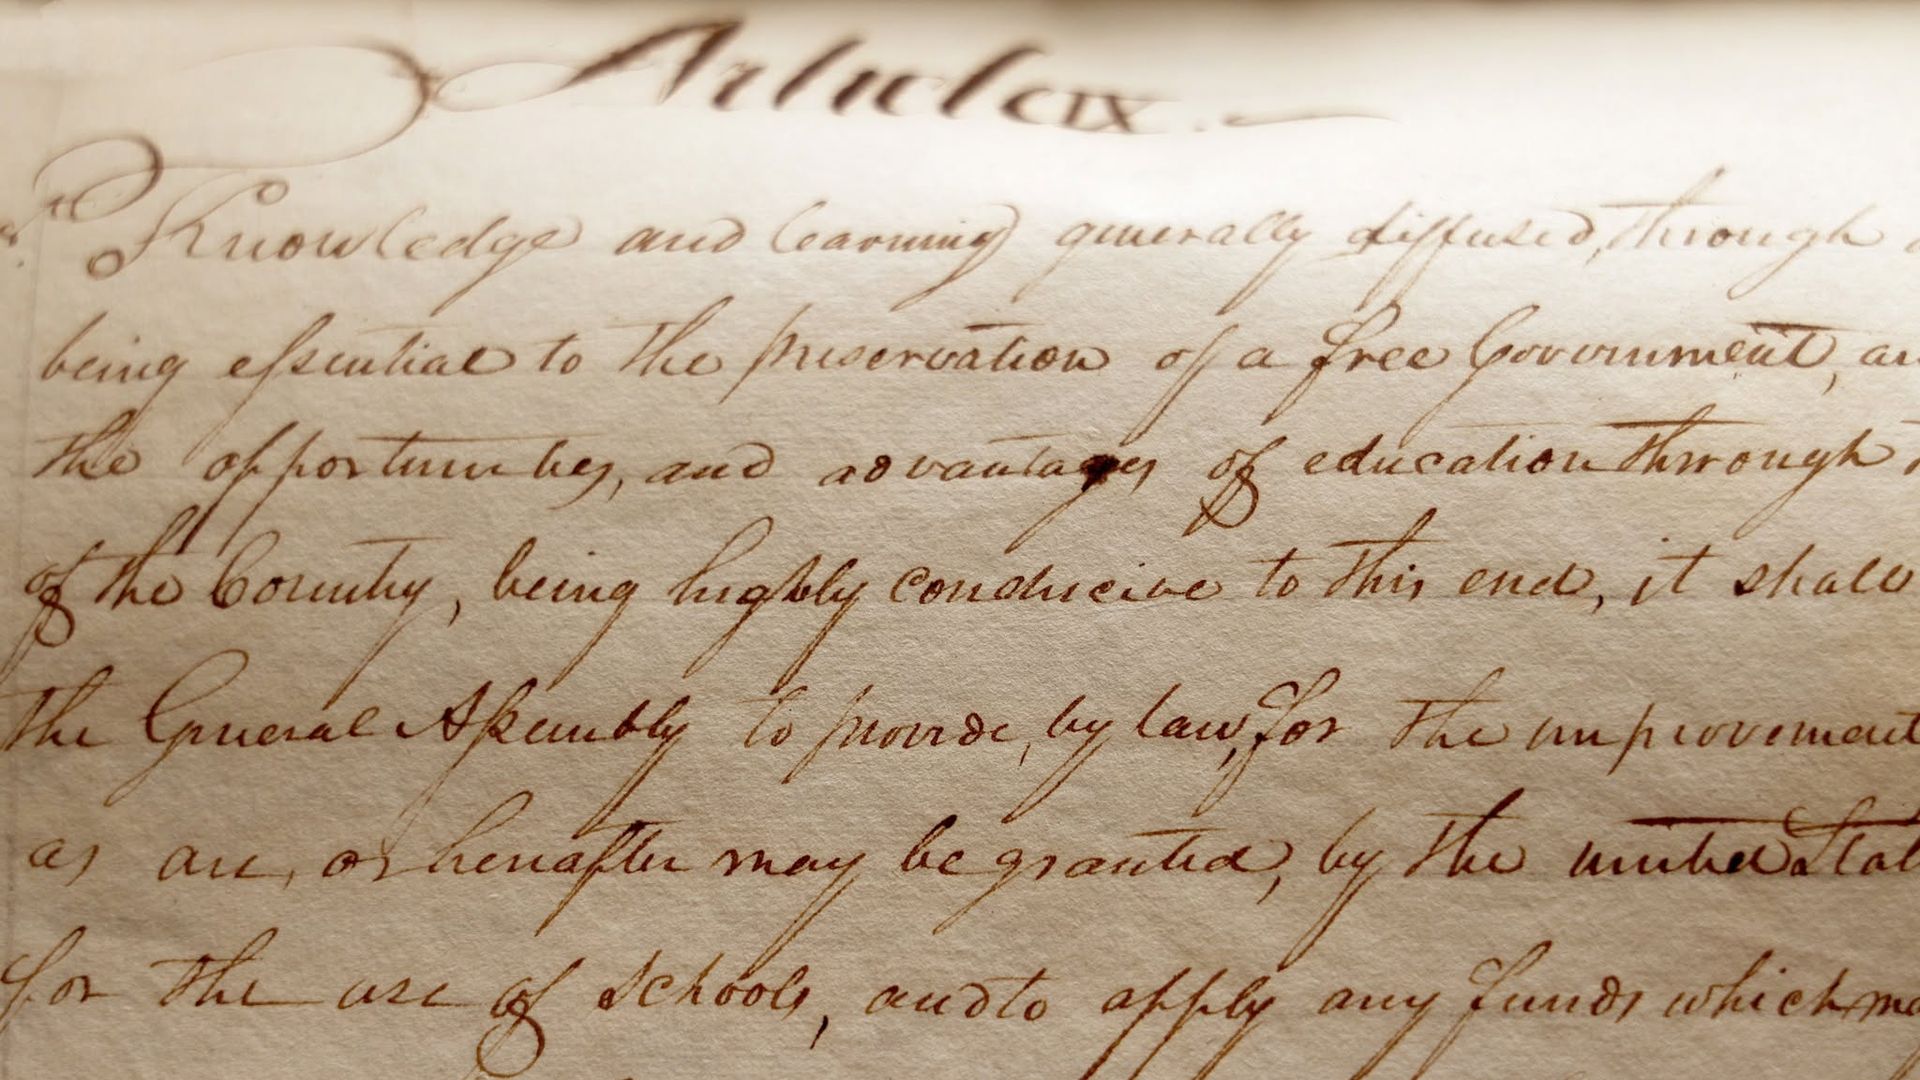 Article IX.
Knowledge and learning generally diffused, through
being essential to the preservation of a free Government, an
the opportunities, and advantages of education through
of the Country, being highly conducive to this end, it shall
the General Assembly to provide, by law, for the improvement
as are, or hereafter may be granted, by the united Stat
for the use of schools, and to apply any funds which ma